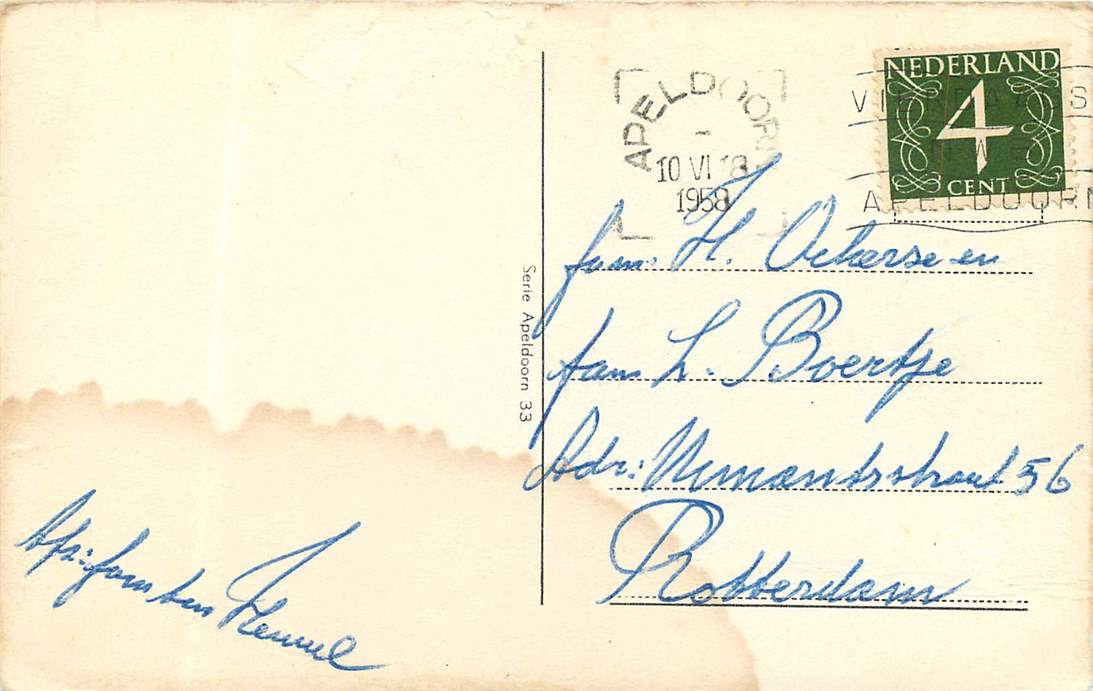 NEDERLAND
4
CENT
APELDOORN
10 VI 18
1958
APELDOORN
Serie Apeldoorn 33
fam. H. Ockerse en
fam L. Boertje
Adr: 56
Rotterdam
Afz: fam ten Heuvel